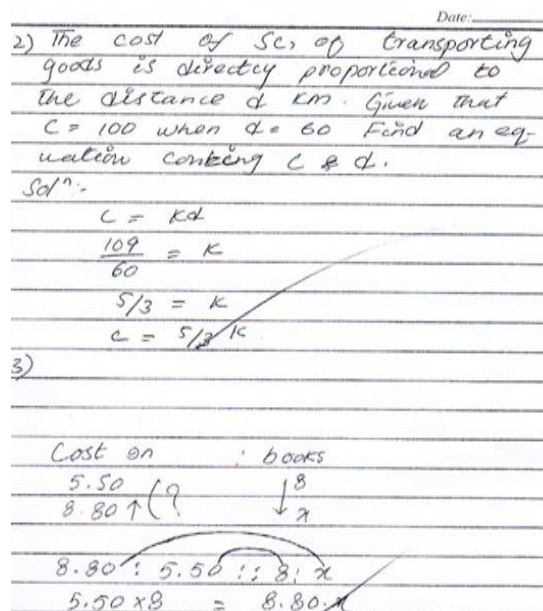 Date:
2) The cost of $c, of transporting
goods is directly proportional to
the distance d km. Given that
C = 100 when d = 60 Find an eq-
uation conking C & d.
Solⁿ:-
C = Kd
109/60 = K
5/3 = K
C = 5/3 K
3)
Cost on : books
5.50 ↑ (? ↓ 8
8.80 x
8.80 : 5.50 :: 8 : x
5.50 x 8 = 8.80.x